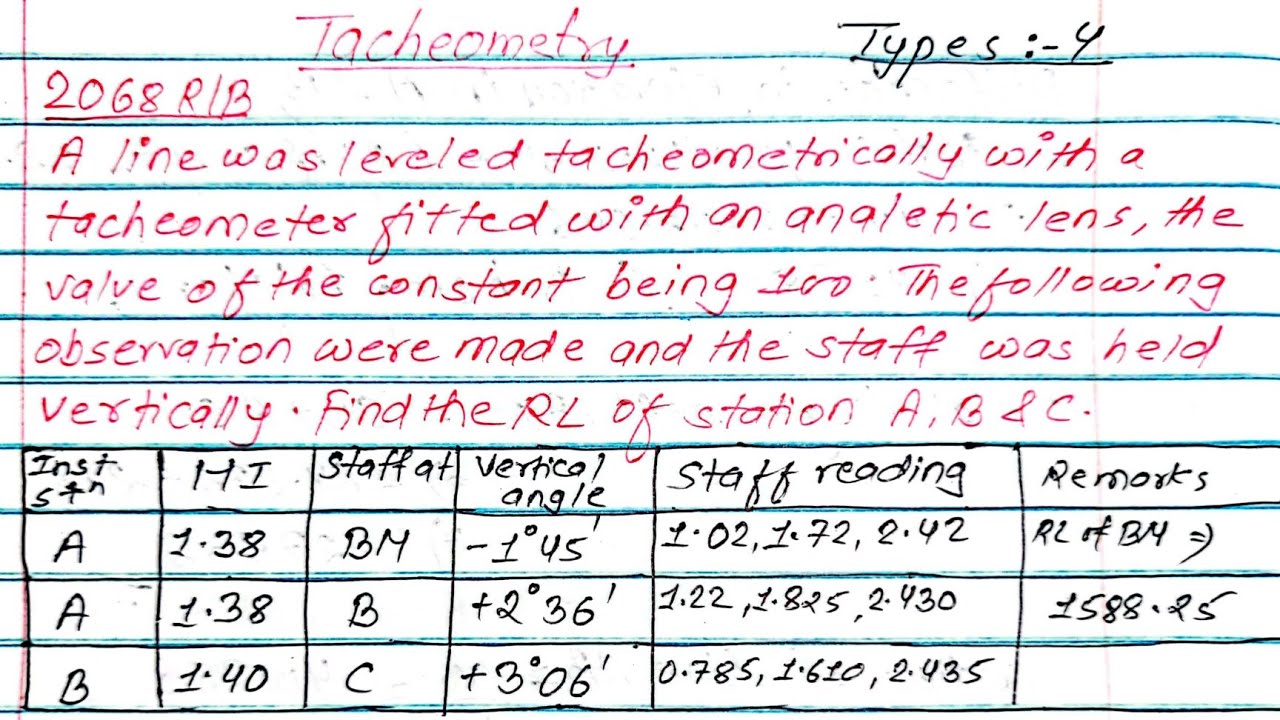 Tacheometry Types:-4
2068 R/B
A line was leveled tacheometrically with a
tacheometer fitted with an analetic lens, the
value of the constant being 100. The following
observation were made and the staff was held
vertically. Find the RL of station A, B & C.
Inst stn HI Staff at Vertical angle Staff reading Remarks
A 1.38 BM -1°45' 1.02, 1.72, 2.42 RL of BM ⇒
A 1.38 B +2°36' 1.22, 1.825, 2.430 1588.25
B 1.40 C +3°06' 0.785, 1.610, 2.435